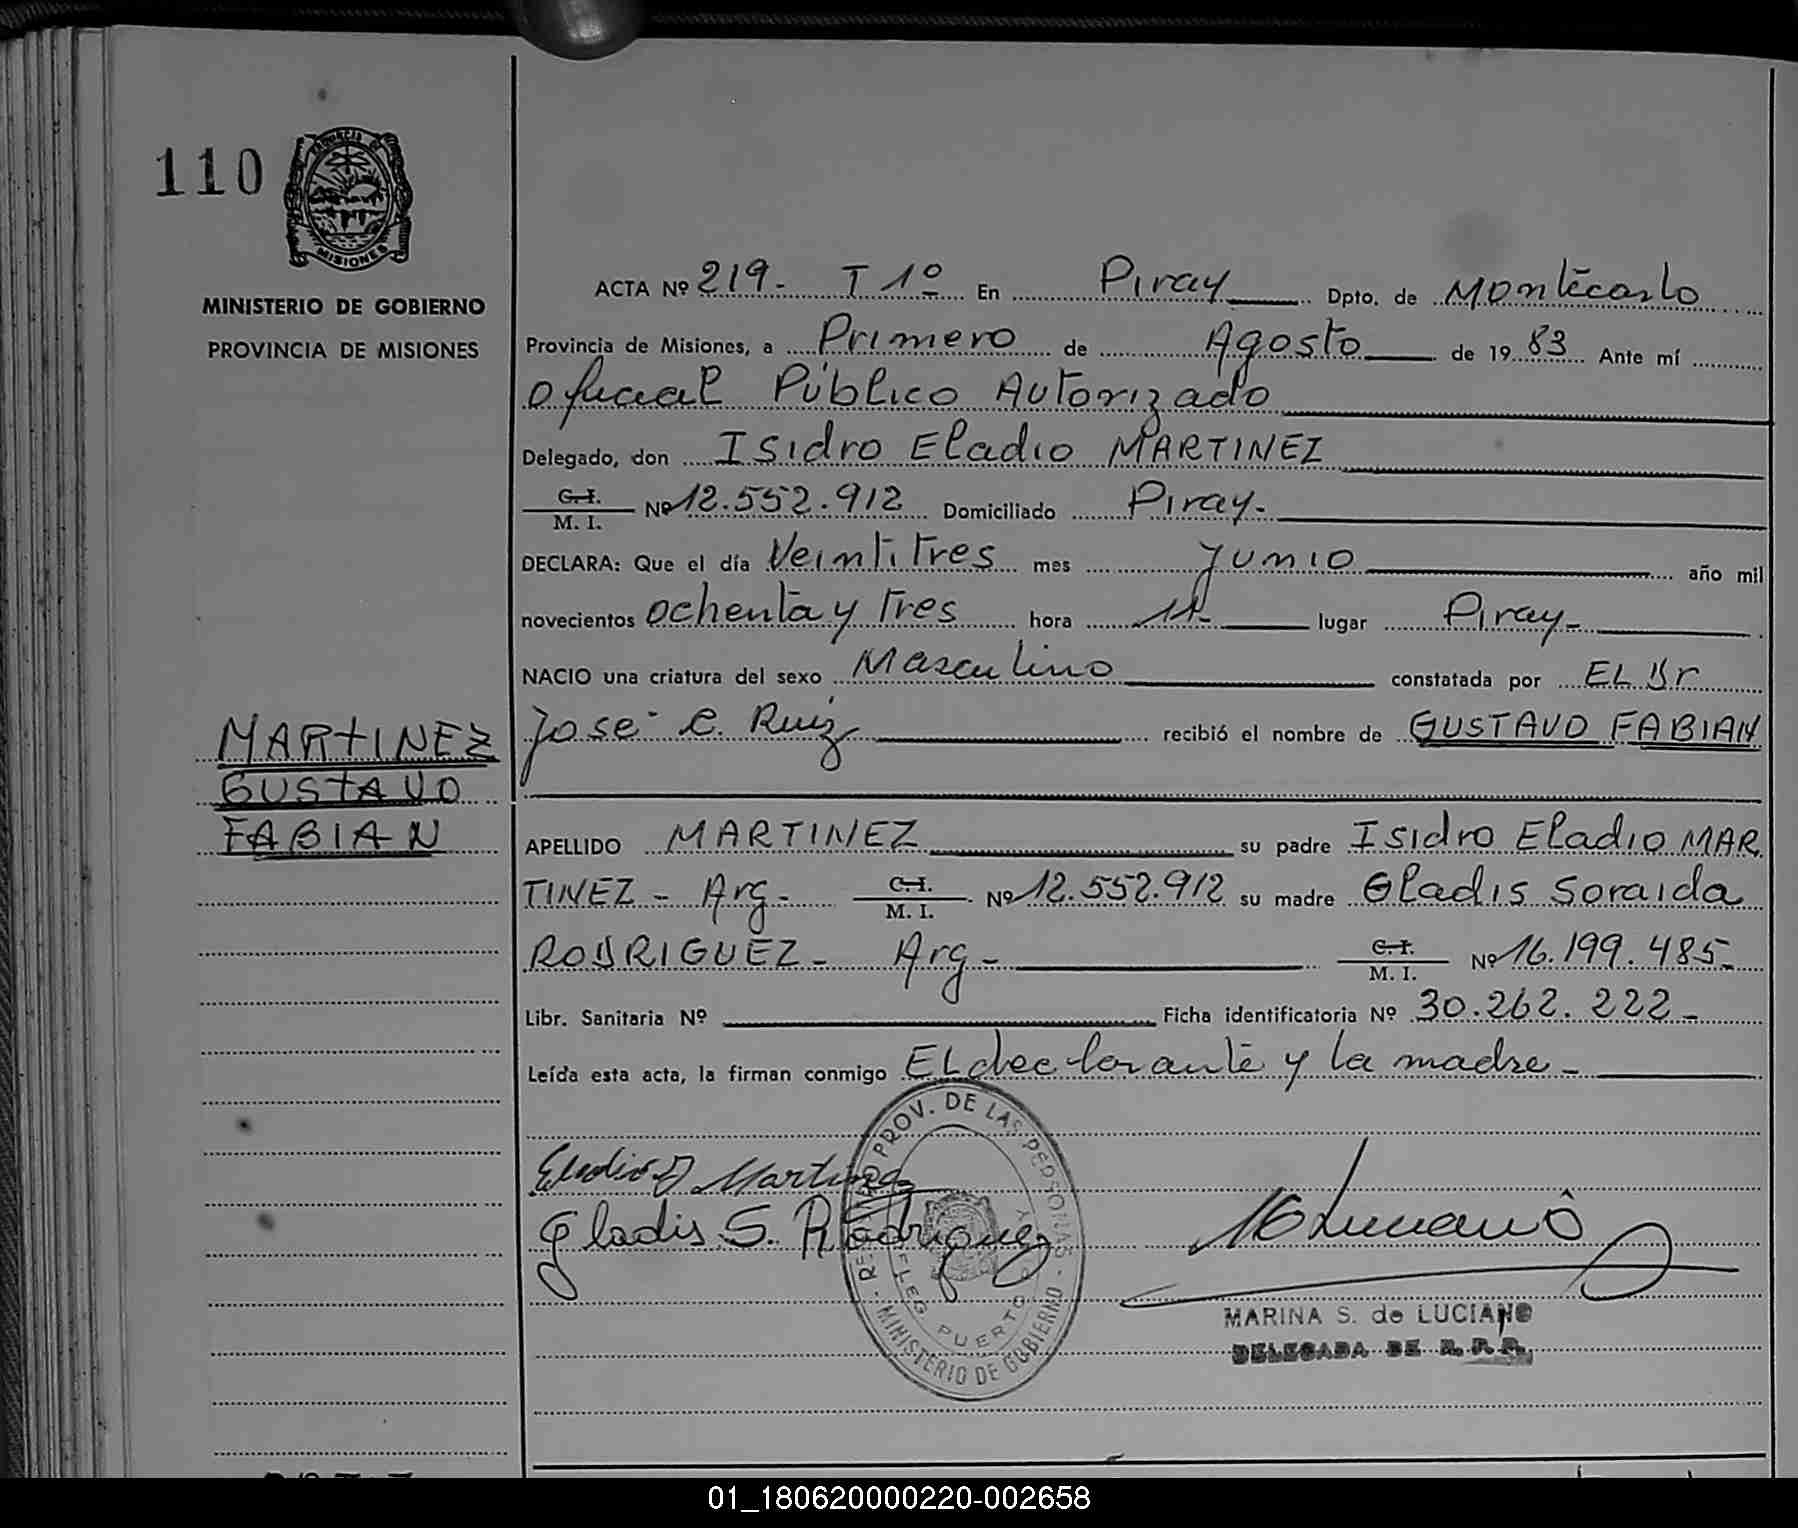 110
PROVINCIA DE
MISIONES
MINISTERIO DE GOBIERNO
PROVINCIA DE MISIONES
ACTA Nº 219- T 1º En Piray Dpto. de Montecarlo
Provincia de Misiones, a Primero de Agosto de 19 83 Ante mí
Oficial Público Autorizado
Delegado, don Isidro Eladio MARTINEZ
C. I.
M. I. Nº 12.552.912 Domiciliado Piray-
DECLARA: Que el día Veintitres mes Junio año mil
novecientos ochenta y tres hora 11- lugar Piray-
NACIO una criatura del sexo Masculino constatada por EL Dr
José C. Ruiz recibió el nombre de GUSTAVO FABIAN
MARTINEZ
GUSTAVO
FABIAN
APELLIDO MARTINEZ su padre Isidro Eladio MAR
TINEZ - Arg- C. I. M. I. Nº 12.552.912 su madre Gladis Soraida
RODRIGUEZ- Arg- C. I. M. I. Nº 16.199.485-
Libr. Sanitaria Nº Ficha identificatoria Nº 30.262.222-
Leída esta acta, la firman conmigo EL declarante y la madre-
Martinez
Gladis S. Rodriguez
PROV. DE LAS PERSONAS - MINISTERIO DE GOBIERNO -
PUERTO
MARINA S. de LUCIANO
DELEGADA DE R. P. P.
01_180620000220-002658